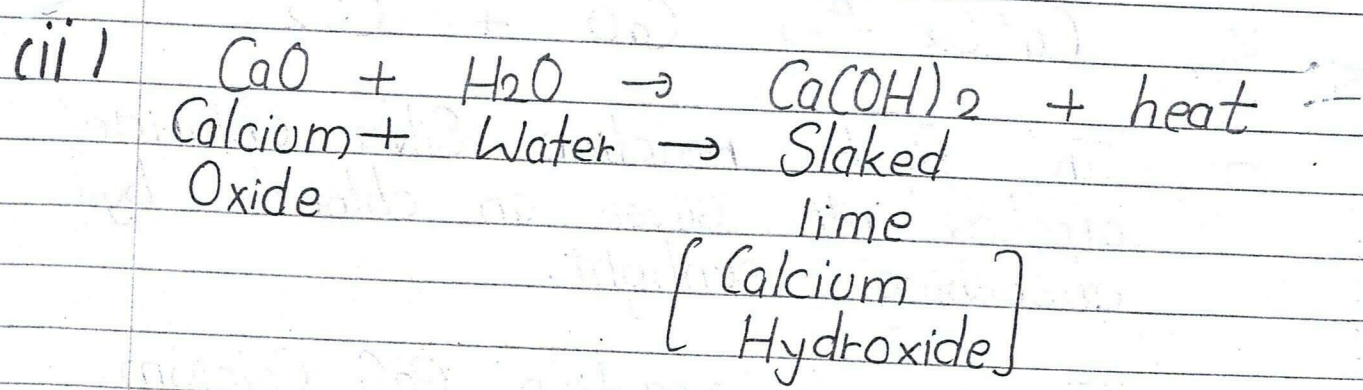 (ii) CaO + H2O → Ca(OH)2 + heat
Calcium + Water → Slaked
Oxide lime
[Calcium
Hydroxide]